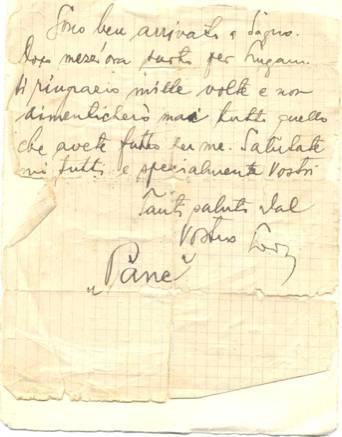 Sono ben arrivato a Sagno.
Dopo mezz'ora parto per Lugano.
Vi ringrazio mille volte e non
dimenticherò mai tutto quello
che avete fatto per me. Salutate
mi tutti e specialmente Vostri
Tanti saluti dal
Vostro
"Pane"